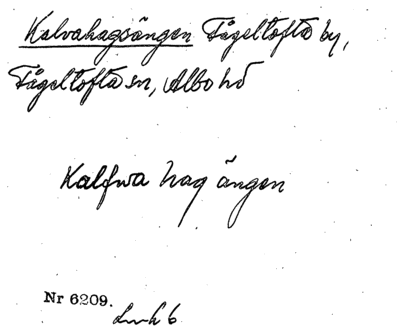 Kalvahagsängen Fågeltofta by,
Fågeltofta sn, Albo hd
Kalfwa hag ängen
Nr 6209.